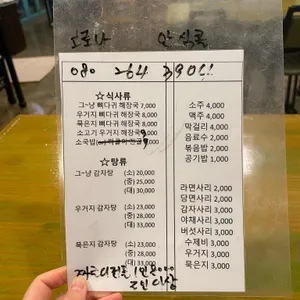 코로나 안심콜
080 264 3901
☆식사류
그~냥 뼈다귀 해장국 7,000
우거지 뼈다귀 해장국 8,000
묵은지 뼈다귀 해장국 8,000
소고기 우거지 해장국 9,000
소국밥
☆탕류
그~냥 감자탕 (소) 20,000
(중) 25,000
(대) 30,000
우거지 감자탕 (소) 23,000
(중) 28,000
(대) 33,000
묵은지 감자탕 (소) 23,000
(중) 28,000
(대) 33,000
2인 이상
소주 4,000
맥주 4,000
막걸리 4,000
음료수 2,000
볶음밥 2,000
공기밥 1,000
라면사리 2,000
당면사리 2,000
감자사리 3,000
야채사리 3,000
버섯사리 3,000
수제비 3,000
우거지 3,000
묵은지 3,000